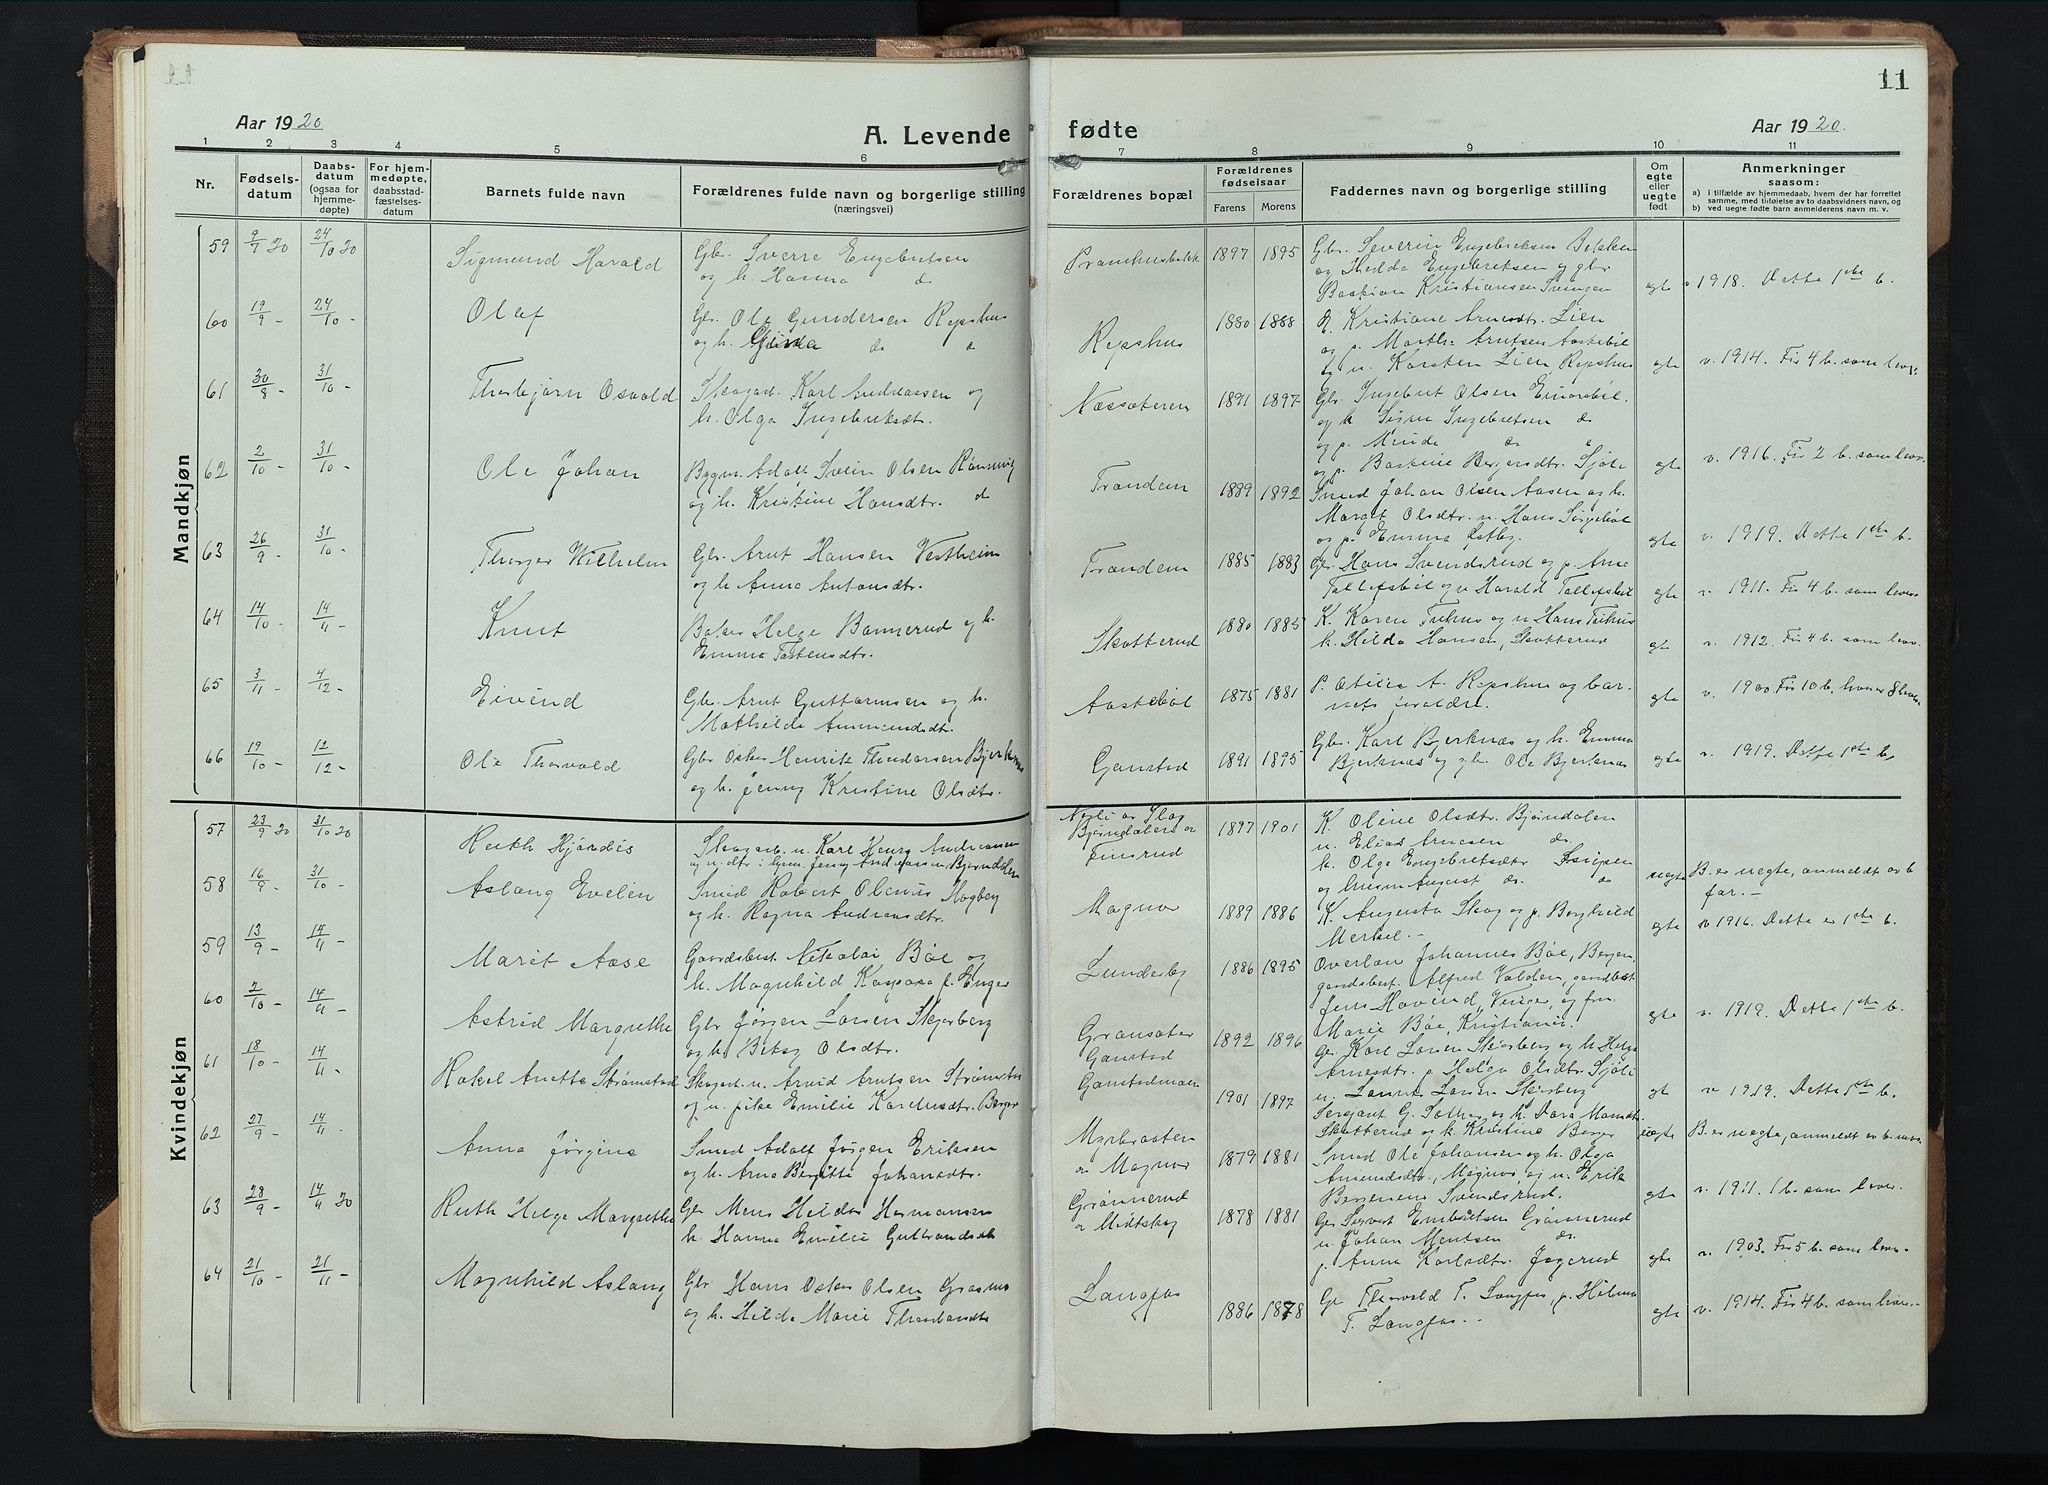 11
Aar 1920
A. Levende fødte
Aar 1920.
1 2 3 4 5 6 7 8 9 10 11
Nr. Fødselsdatum Daabsdatum (ogsaa for hjemmedøpte) For hjemmedøpte, daabsstadfæstelsesdatum Barnets fulde navn Forældrenes fulde navn og borgerlige stilling (næringsvei) Forældrenes bopæl Forældrenes fødselsaar Farens Morens Faddernes navn og borgerlige stilling Om egte eller uegte født Anmerkninger saasom:
a) i tilfælde av hjemmedaab, hvem der har forrettet samme, med tilføielse av to daabsvidners navn, og
b) ved uegte fødte barn anmelderens navn m. v.
Mandkjøn
59 9/7 20 24/10 20 Sigmund Harald Gbr. Sverre Engebretsen
og h. Hanna do 1897 1895 Gbr. Severin Engebretsen Bekken
og Hedda Engebretsen og gbr.
Bastian Kristiansen Svingen egte v 1918. Dette 1ste b.
60 19/9 - 24/10 - Olaf Gbr. Ole Gundersen Repshus
og h. Gina do do Repshus 1880 1888 K. Kristiane Arnesdtr. Lien
og p. Marthe Arntsen Aastebøl
og u. Karsten Lien Repshus egte v. 1914. Før 4 b. som lever.
61 30/8 - 31/10 - Thorbjørn Osvald Skogarb. Karl Andreassen og
h. Olga Ingebretsdtr. Næssæteren 1891 1897 Gbr. Ingebret Olsen Einarsbøl
og h Ingebretsen do
og p. Minda do
og p. Bastine Bergersdtr. Sjøli egte v. 1916. Før 2 b. som lever.
62 2/10 - 31/10 - Ole Johan Bygm. Adolf Svein Olsen Rønning
og h. Kristine Hansdtr. do Trandem 1889 1892 Smed Johan Olsen Aasen og h.
Margit Olsdtr. u. Hans
og p. Emma Østby. egte v. 1919. Dette 1ste b.
63 26/9 - 31/10 - Thorger Wilhelm Gbr. Arnt Hansen Vestheim
og h Anna Antonsdtr. Trandem 1885 1883 Gbr. Hans Svendsrud og p. Arna
Tollefsbøl og u Harald Tollefsbøl egte v. 1911. Før 4 b. som lever.
64 14/10 - 14/11 - Knut Baker Helge Bannerud og h.
Emma Torstensdtr. Skotterud 1880 1885 K. Karen og u Hans
k. Hilda Hansen, Skotterud egte v. 1912. Før 4 b. som lever.
65 3/11 - 4/12 - Eivind Gbr. Arnt Guttormsen og h.
Mathilde Ammundsdtr. Aastebøl 1875 1881 P. Otilie A. Repshus og bar-
nets foraldre. egte v. 1900 Før 10 b. hvorav 8 lever
66 19/10 - 12/12 - Ole Thorvald Gbr Oskar Henrik Theodorsen Bjerknæs
og h. Jenny Kristine Olsdtr. Ganstad 1891 1895 Gbr. Karl Bjerknæs og h. Emma
Bjerknæs og gbr. Ole Bjerknæs egte v. 1919. Dette 1ste b.
Kvindekjøn
57 23/9 20 31/10 20 Ruth Hjørdis Skogarb. u. Karl Henry Andreassen
og u. dtr. i hjem. Jenny Andreassen Bjørndalen Bjørndalens
Finsrud 1897 1901 K. Oline Olsdtr. Bjørndalen
u. Elias Arnesen do
k. Olga Engebretsdtr
og husm August do. do uegte B. er uegte, anmeldt av b
far. -
58 16/9 - 31/10 - Aslaug Evelin Smed Robert Olanus Mogberg
og h. Ragna Andreasdtr. Magnor 1889 1886 K. Augusta Skog og p. Borghild
Merkel. - egte v 1916. Dette er 1ste b.
59 13/9 - 14/11 - Marit Aase Gaardsbest. Nikolai Bøe og
h. Magnhild Kaspara f. Enger Lunderby 1886 1895 Overlær Johannes Bøe, Bergen,
gaardsbest. Alfred Valden, gaardbest
Jens Hovind, og fru
Marie Bøe, Kristiania. egte v. 1919. Dette 1ste b.
60 2/10 - 14/11 - Astrid Margrethe Gbr Jørgen Larsen Skjerberg
og h. Betsy Olsdtr. Gransæter
Ganstad 1892 1896 Gbr Karl Larsen Skjerberg og h. Helga
Arnesdtr. p Helga Olsdtr. Sjøli
u. Larsen Skjerberg gt v 1919. Dette 1ste b.
61 18/10 - 14/11 - Rakel Anetta Strømstad Skogarb. u. Arvid Arntsen Strømstad
og u. pike Emilie Karelusdtr. Berger Ganstadmoen 1901 1897 Sergeant G. og h. Dora
Skotterud og k. Kristine Berger uegte B. er uegte, anmeldt av b. mor.
62 27/9 - 14/11 - Anna Jørgine Smed Adolf Jørgen Eriksen
og h. Anna Bergitte Johansdtr. Myrbraaten
av Magnor 1879 1881 Smed Ole Johansen og h. Olga
Amundsdtr., Magnor, og u. Erik
Bergersen Svendsrud. egte v. 1911. 1 b. som lever.
63 28/9 - 14/11 20 Ruth Helga Margrethe Gbr Mons Hildor Hermansen
h. Hanna Emilie Guttormsdtr Grønnerud
av Midtskog 1878 1881 Gbr Sigvart Embretsen Grønnerud
u. Johan Mentsen do.
p. Anna Karlsdtr. Jegerud egte v. 1903. Før 5 b. som lever.
64 21/10 - 21/11 - Magnhild Aslaug Gbr Hans Oskar Olsen
og h. Hilda Marie Langfos 1886 1878 Gbr Thorvald T. Langfos, p. Hilma
T. Langfos. - egte v. 1914. Før 4 b. som lever